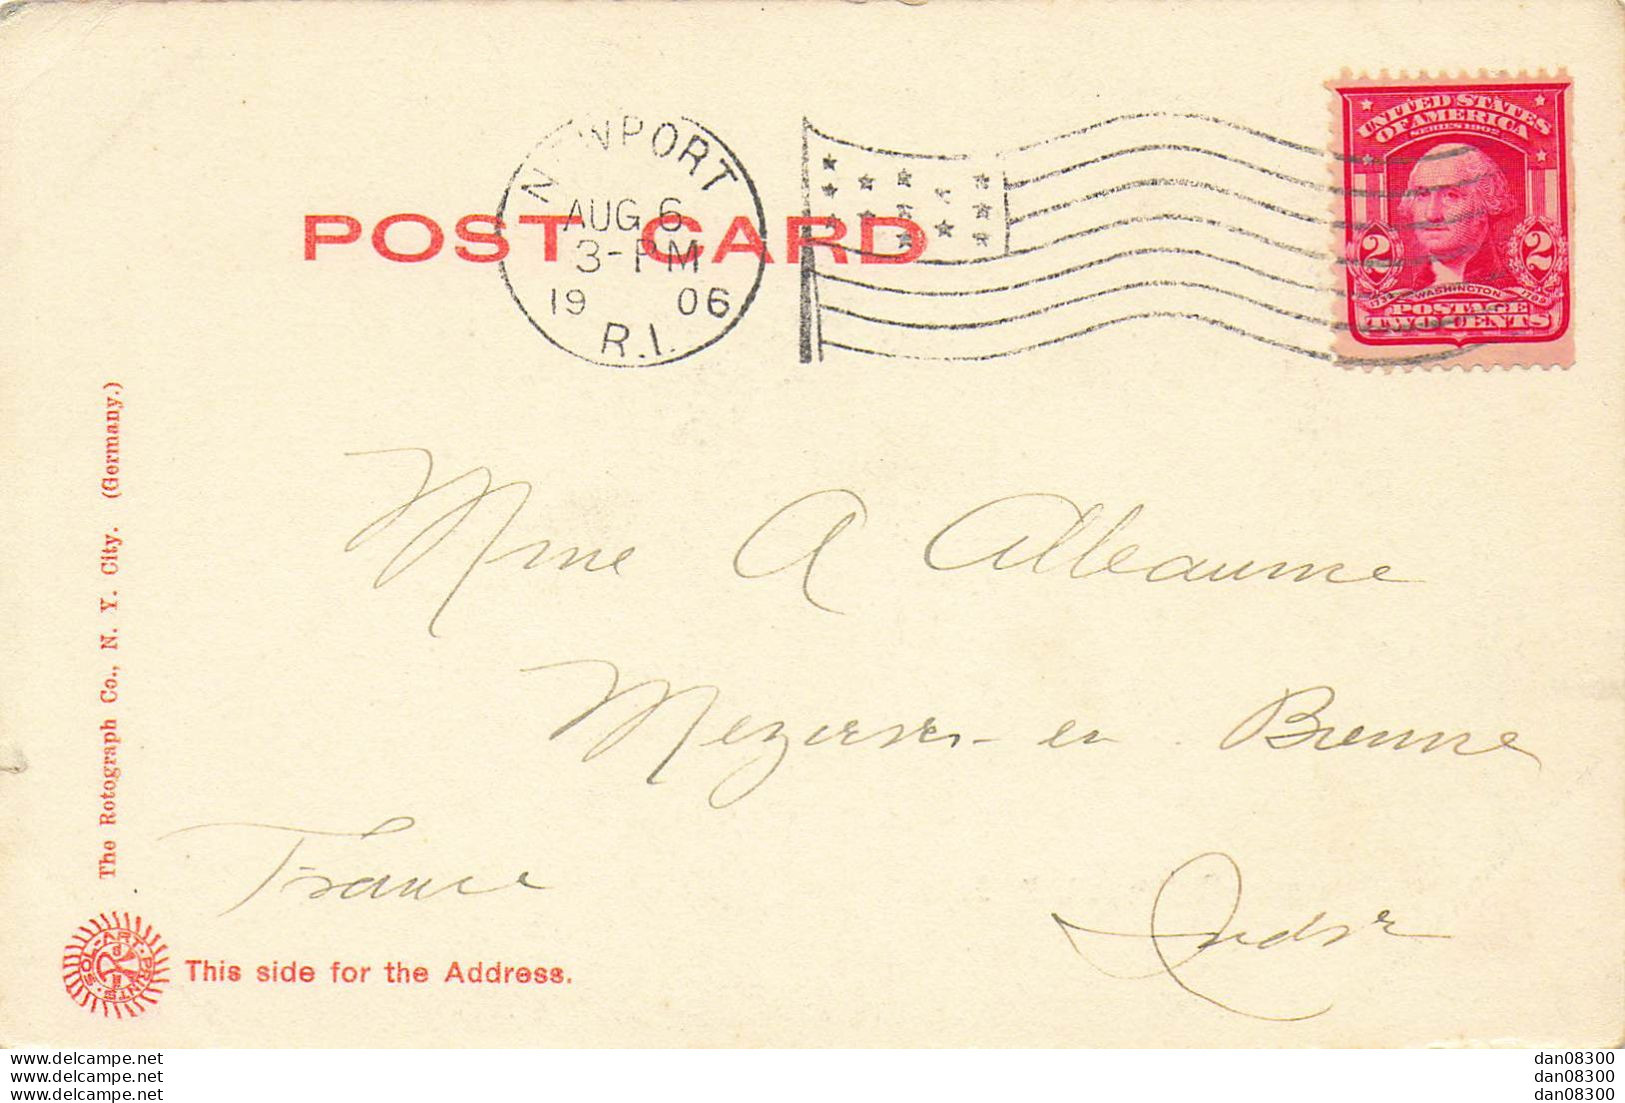 POST CARD
NEWPORT
AUG 6
3-PM
19 06
R.I.
UNITED STATES
OF AMERICA
SERIES 1902
2 2
1732 WASHINGTON 1799
POSTAGE
TWO CENTS
Mme A Alleaume
Mezieres-en Brenne
France
Indre
The Rotograph Co., N. Y. City. (Germany.)
SOL-ART-PRINTS
This side for the Address.
www.delcampe.net
www.delcampe.net
www.delcampe.net
dan08300
dan08300
dan08300